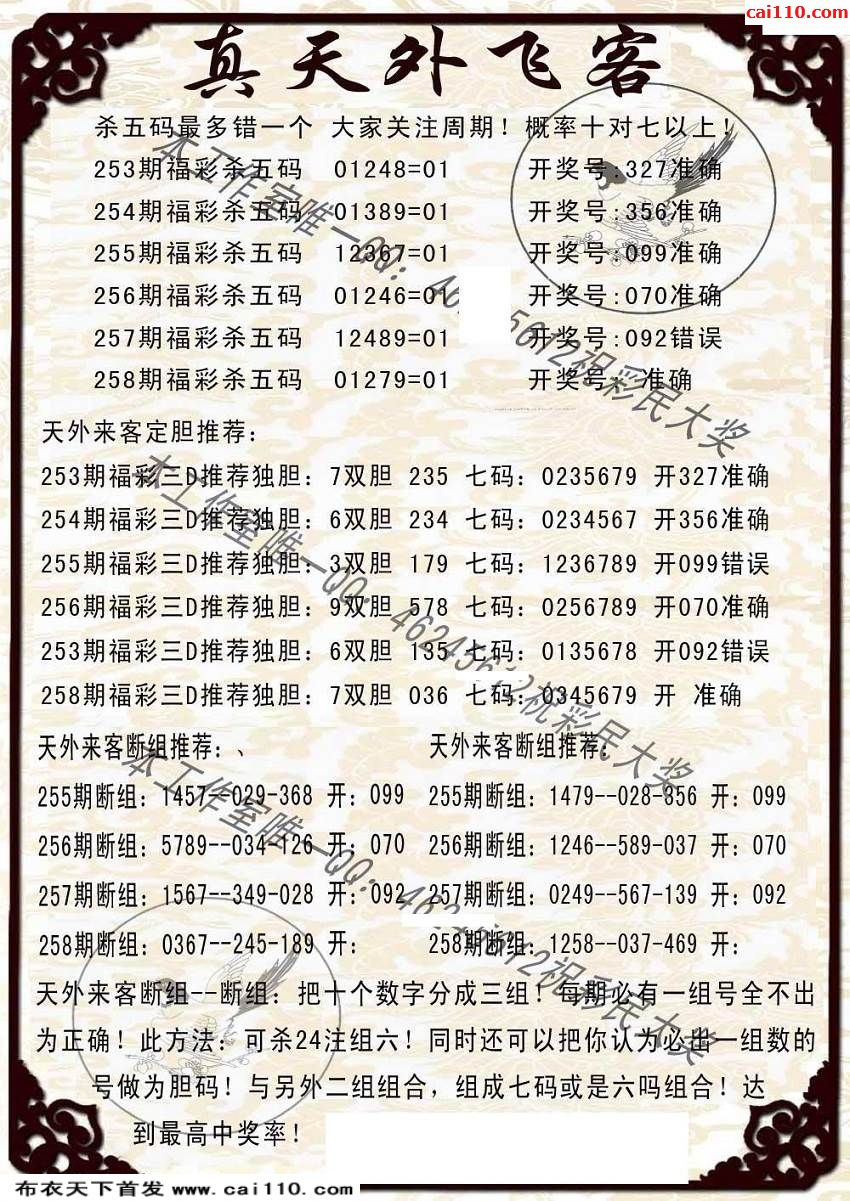 cai110.com
真天外飞客
杀五码最多错一个 大家关注周期！概率十对七以上！
253期福彩杀五码 01248=01 开奖号:327准确
254期福彩杀五码 01389=01 开奖号:356准确
255期福彩杀五码 12367=01 开奖号:099准确
256期福彩杀五码 01246=01 开奖号:070准确
257期福彩杀五码 12489=01 开奖号:092错误
258期福彩杀五码 01279=01 开奖号: 准确
天外来客定胆推荐：
253期福彩三D推荐独胆：7双胆 235 七码：0235679 开327准确
254期福彩三D推荐独胆：6双胆 234 七码：0234567 开356准确
255期福彩三D推荐独胆：3双胆 179 七码：1236789 开099错误
256期福彩三D推荐独胆：9双胆 578 七码：0256789 开070准确
253期福彩三D推荐独胆：6双胆 135 七码：0135678 开092错误
258期福彩三D推荐独胆：7双胆 036 七码：0345679 开 准确
天外来客断组推荐：、 天外来客断组推荐：
255期断组：1457--029-368 开：099 255期断组：1479--028-856 开：099
256期断组：5789--034-126 开：070 256期断组：1246--589-037 开：070
257期断组：1567--349-028 开：092 257期断组：0249--567-139 开：092
258期断组：0367--245-189 开： 258期断组：1258--037-469 开：
天外来客断组--断组：把十个数字分成三组！每期必有一组号全不出
为正确！此方法：可杀24注组六！同时还可以把你认为必出一组数的
号做为胆码！与另外二组组合，组成七码或是六吗组合！达
到最高中奖率！
本工作室唯一QQ：46 5612祝彩民大奖
本工作室唯一QQ：46245612祝彩民大奖
本工作室唯一QQ：462 5612祝彩民大奖
布衣天下首发 www.cai110.com